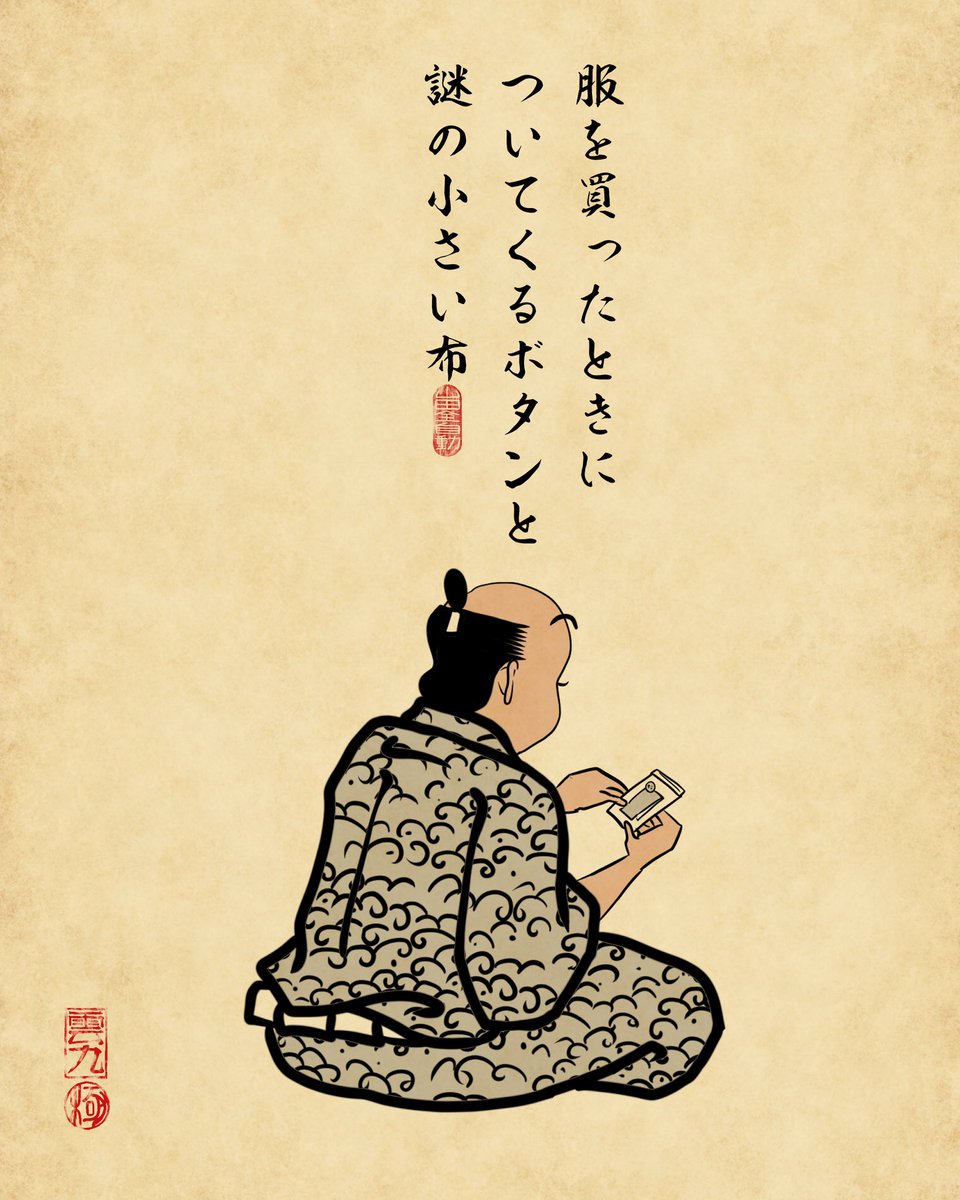 服を買ったときに
ついてくるボタンと
謎の小さい布
山田全自動